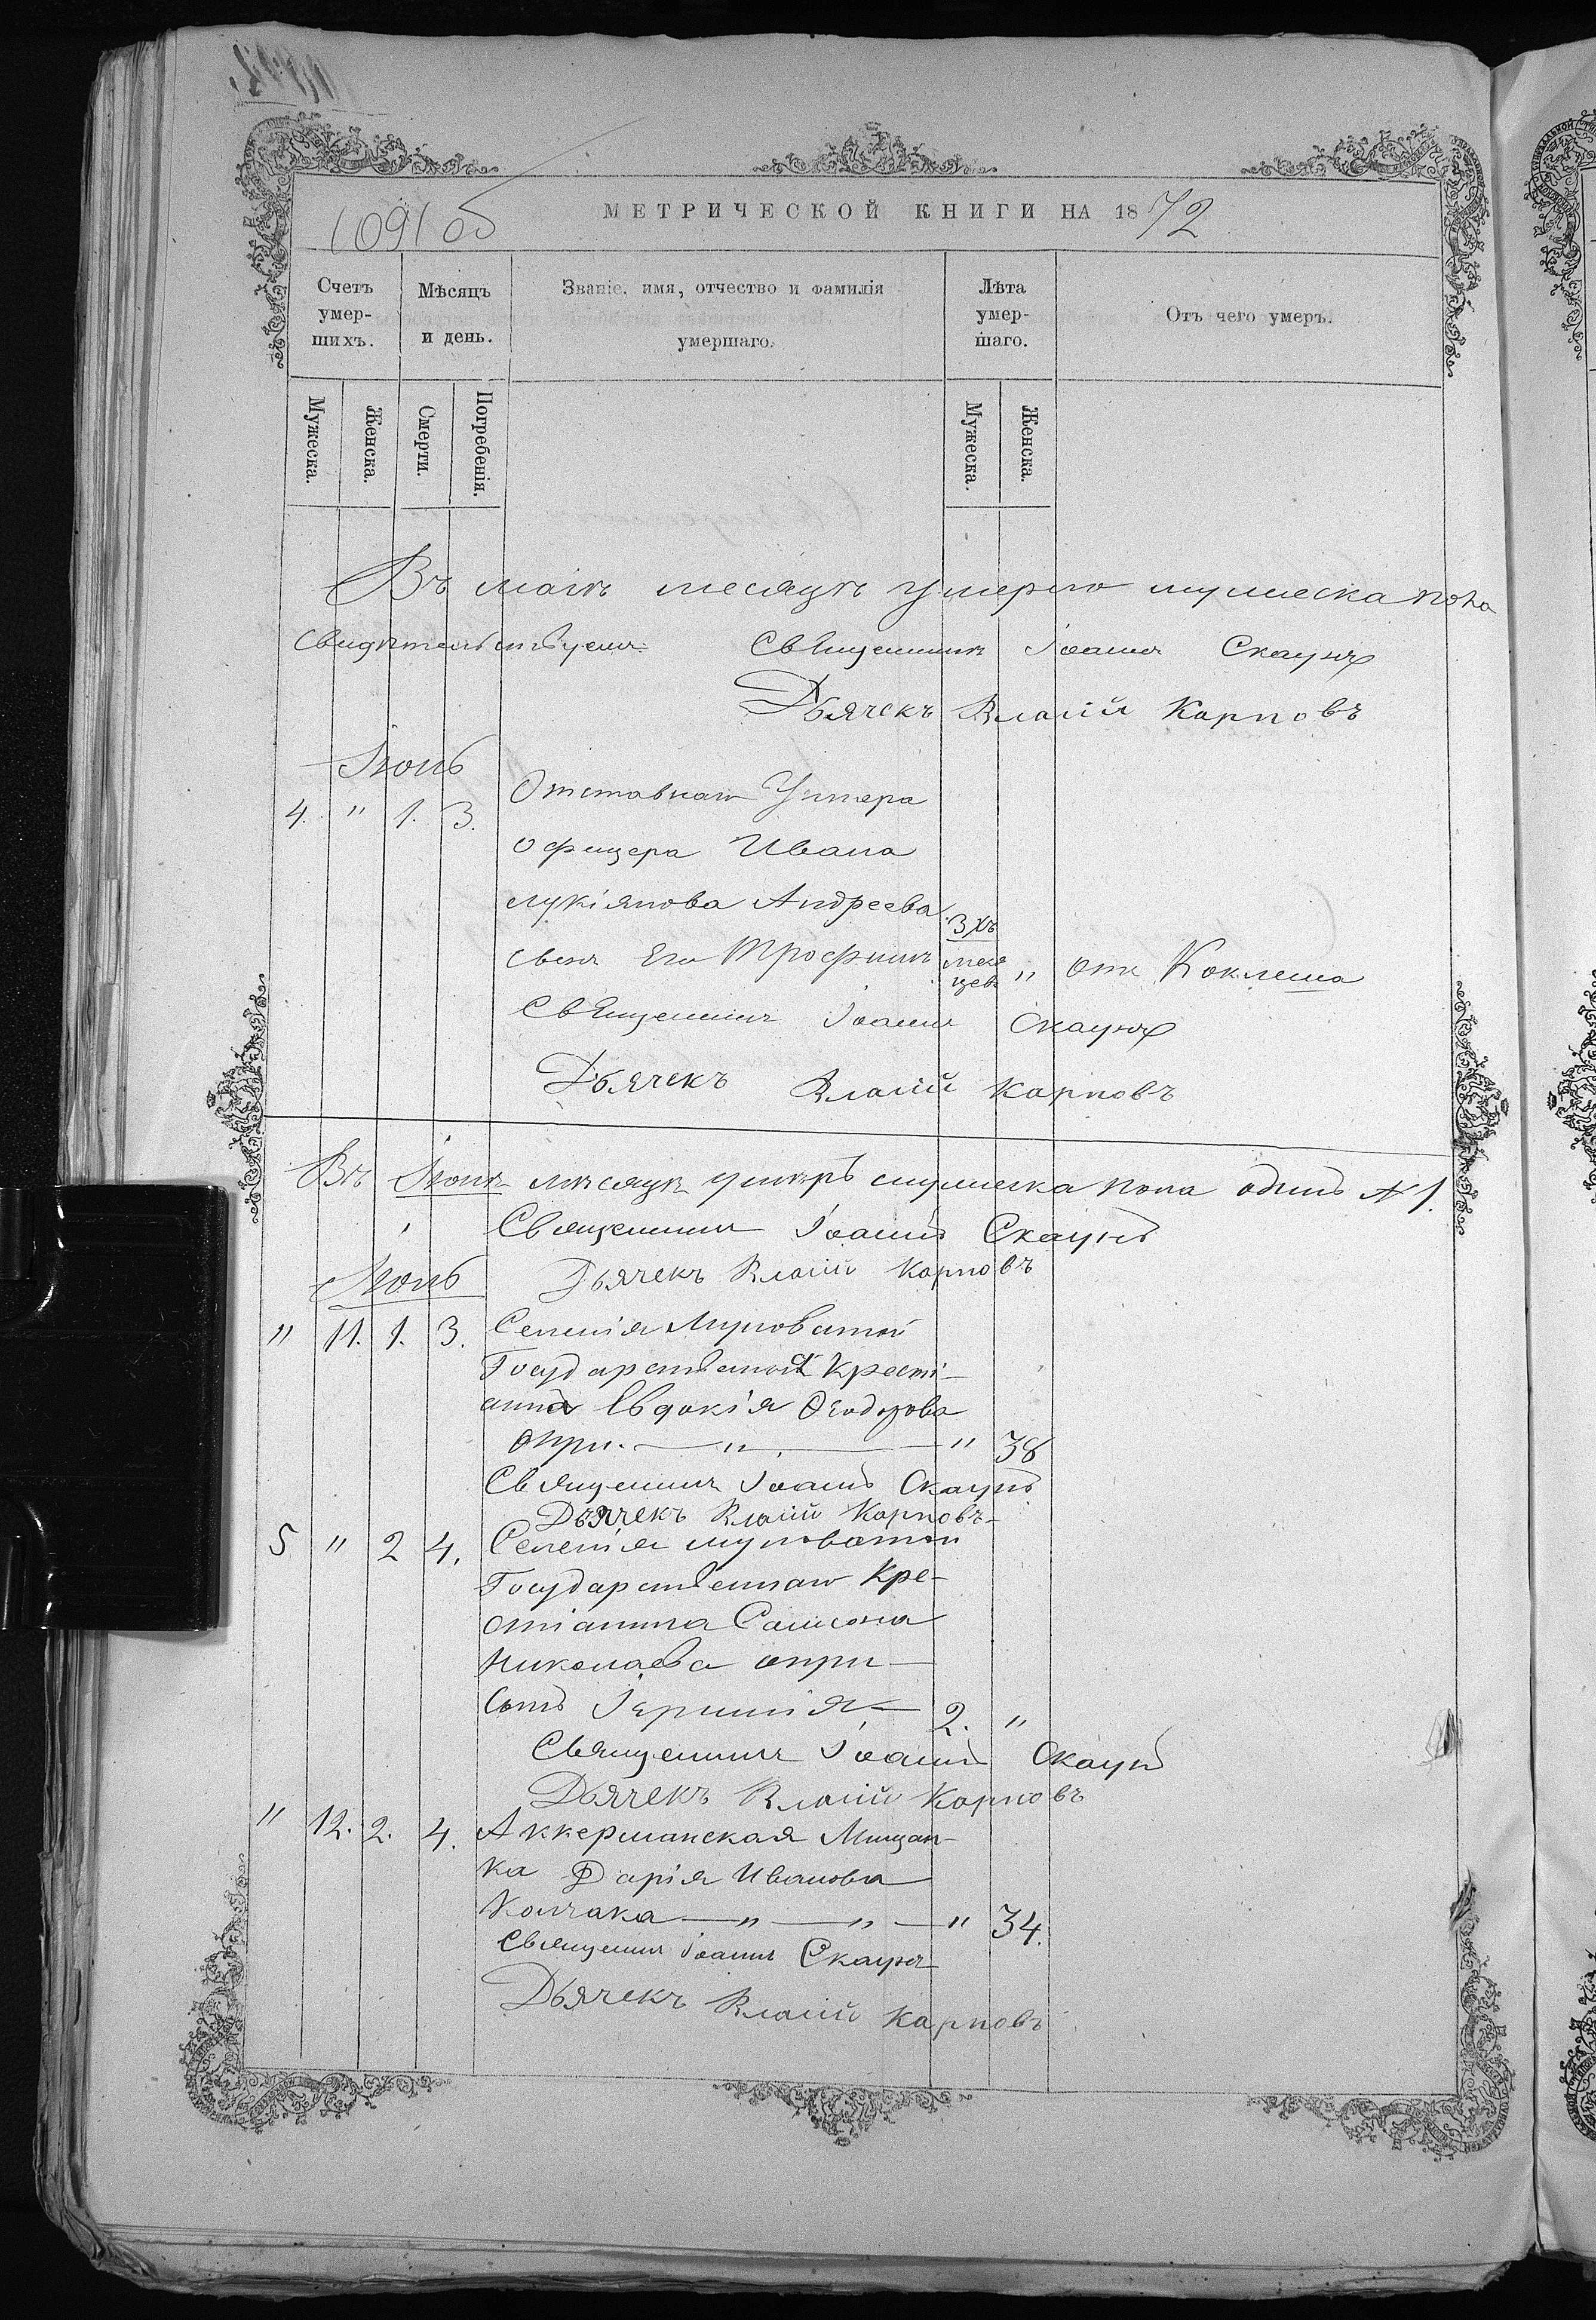 1091 об
МЕТРИЧЕСКОЙ КНИГИ НА 1872
Счетъ умер-шихъ.
Мѣсяцъ и день.
Званіе, имя, отчество и фамилія умершаго.
Лѣта умер-шаго.
Отъ чего умеръ.
Мужеска.
Женска.
Смерти.
Погребенія.
Мужеска.
Женска.
Въ маіѣ месяцѣ умерло мужеска пола
свидѣтельствуемъ Священникъ Іоаннъ Скаунъ
Дьячекъ Власій Карповъ
Іюнь
4. " 1. 3. Отставнаго Унтера
офицера Ивана
Лукіянова Андреева
сынъ Его Трофимъ 3 хъ месяцев " отъ Коклеша
Священникъ Іоаннъ Скаунъ
Дьячекъ Власій Карповъ
Въ Іюнѣ мѣсяцѣ умеръ мужеска пола одинъ № 1.
Священникъ Іоаннъ Скаунъ
Дьячекъ Власій Карповъ
Іюль
" 11. 1. 3. Селенія
Государственной Крестi-
анка Евдокія Феодорова
Опри. — " — " 38
Священникъ Іоаннъ Скаунъ
Дьячекъ Власій Карповъ
5 " 2 4. Селенія
Государственнаго Кре-
стіанина Самсона
Николаева опри
сынъ 2. "
Священникъ Іоаннъ Скаунъ
Дьячекъ Власій Карповъ
" 12. 2. 4. Аккерманская Мищан-
ка Дарія Иванова
Колчака — " — " — " 34.
Священникъ Іоаннъ Скаунъ
Дьячекъ Власій Карповъ